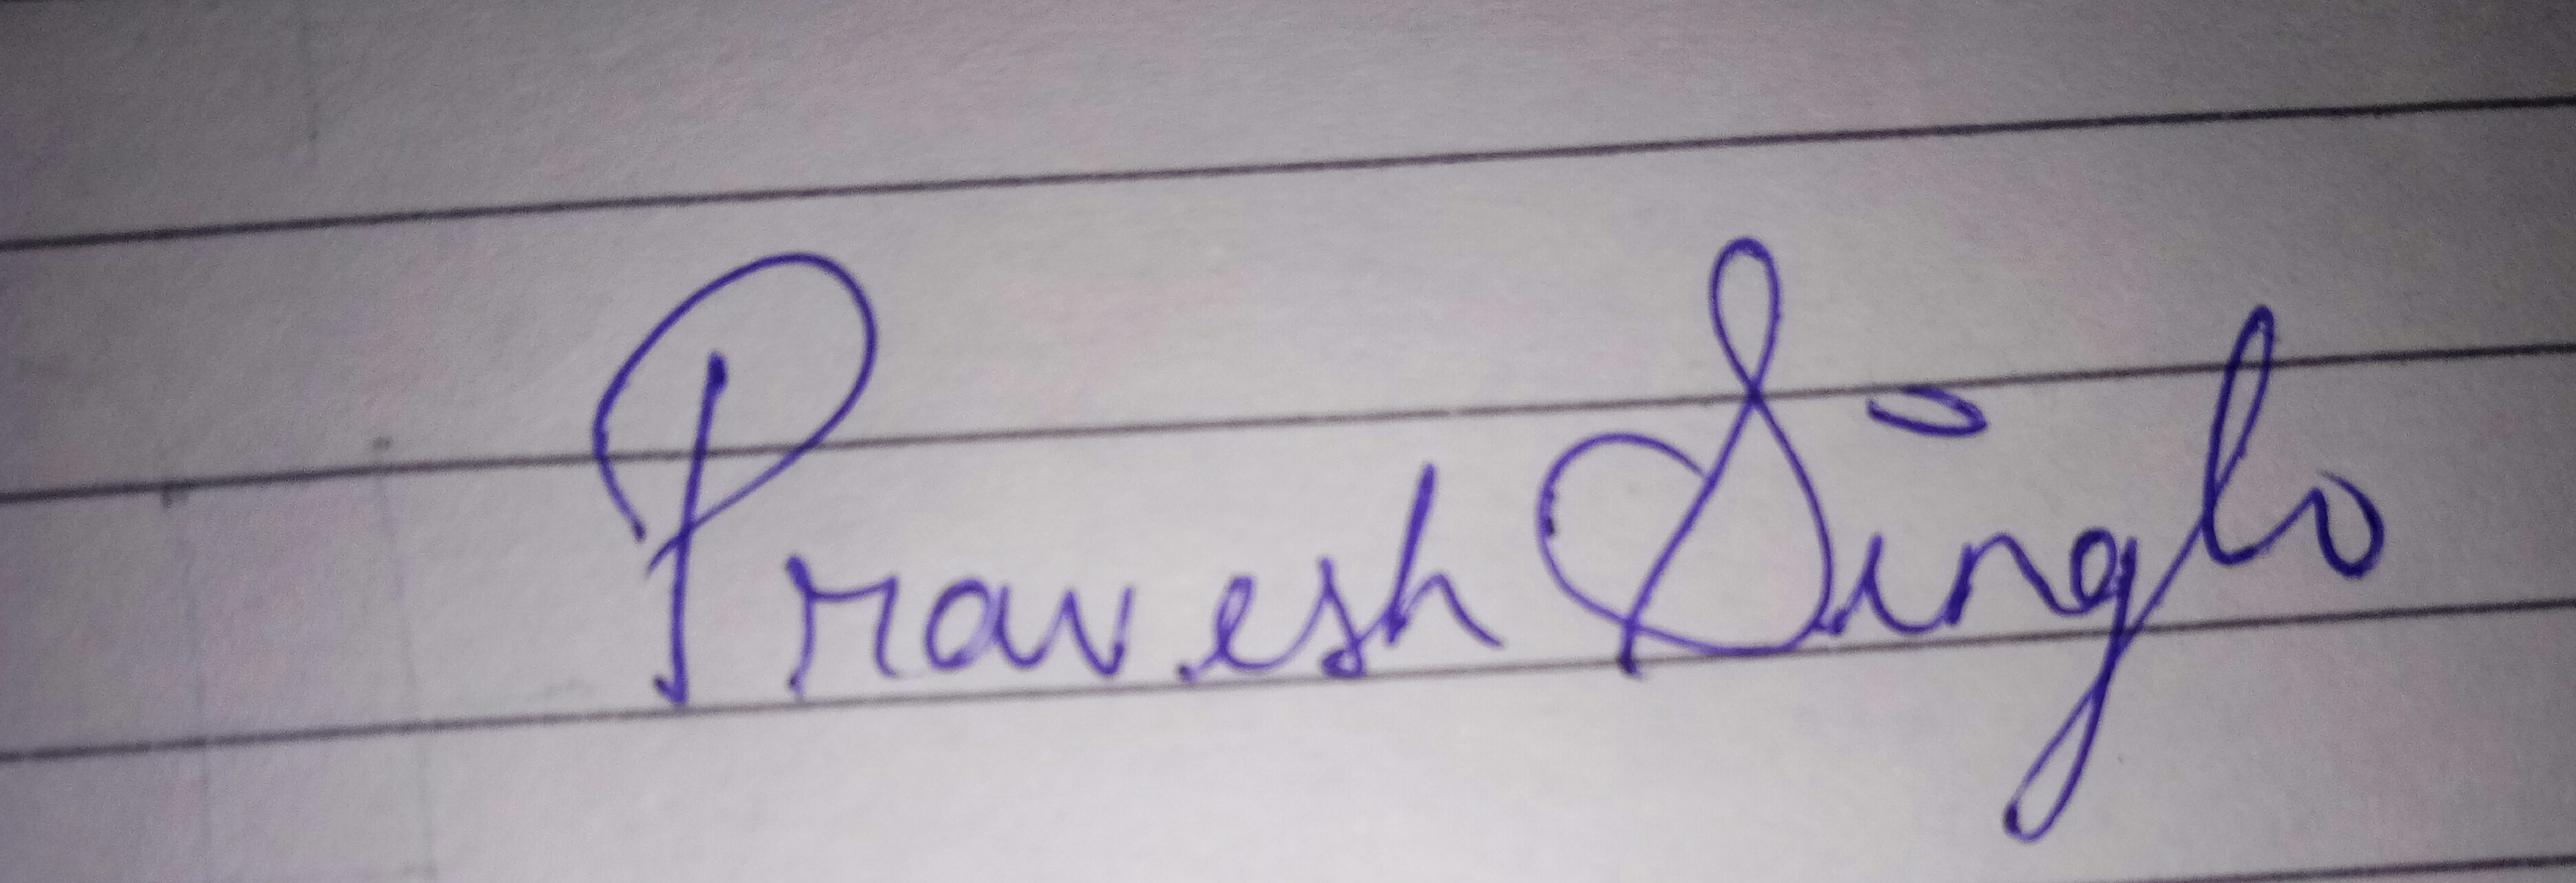 Pravesh Singh